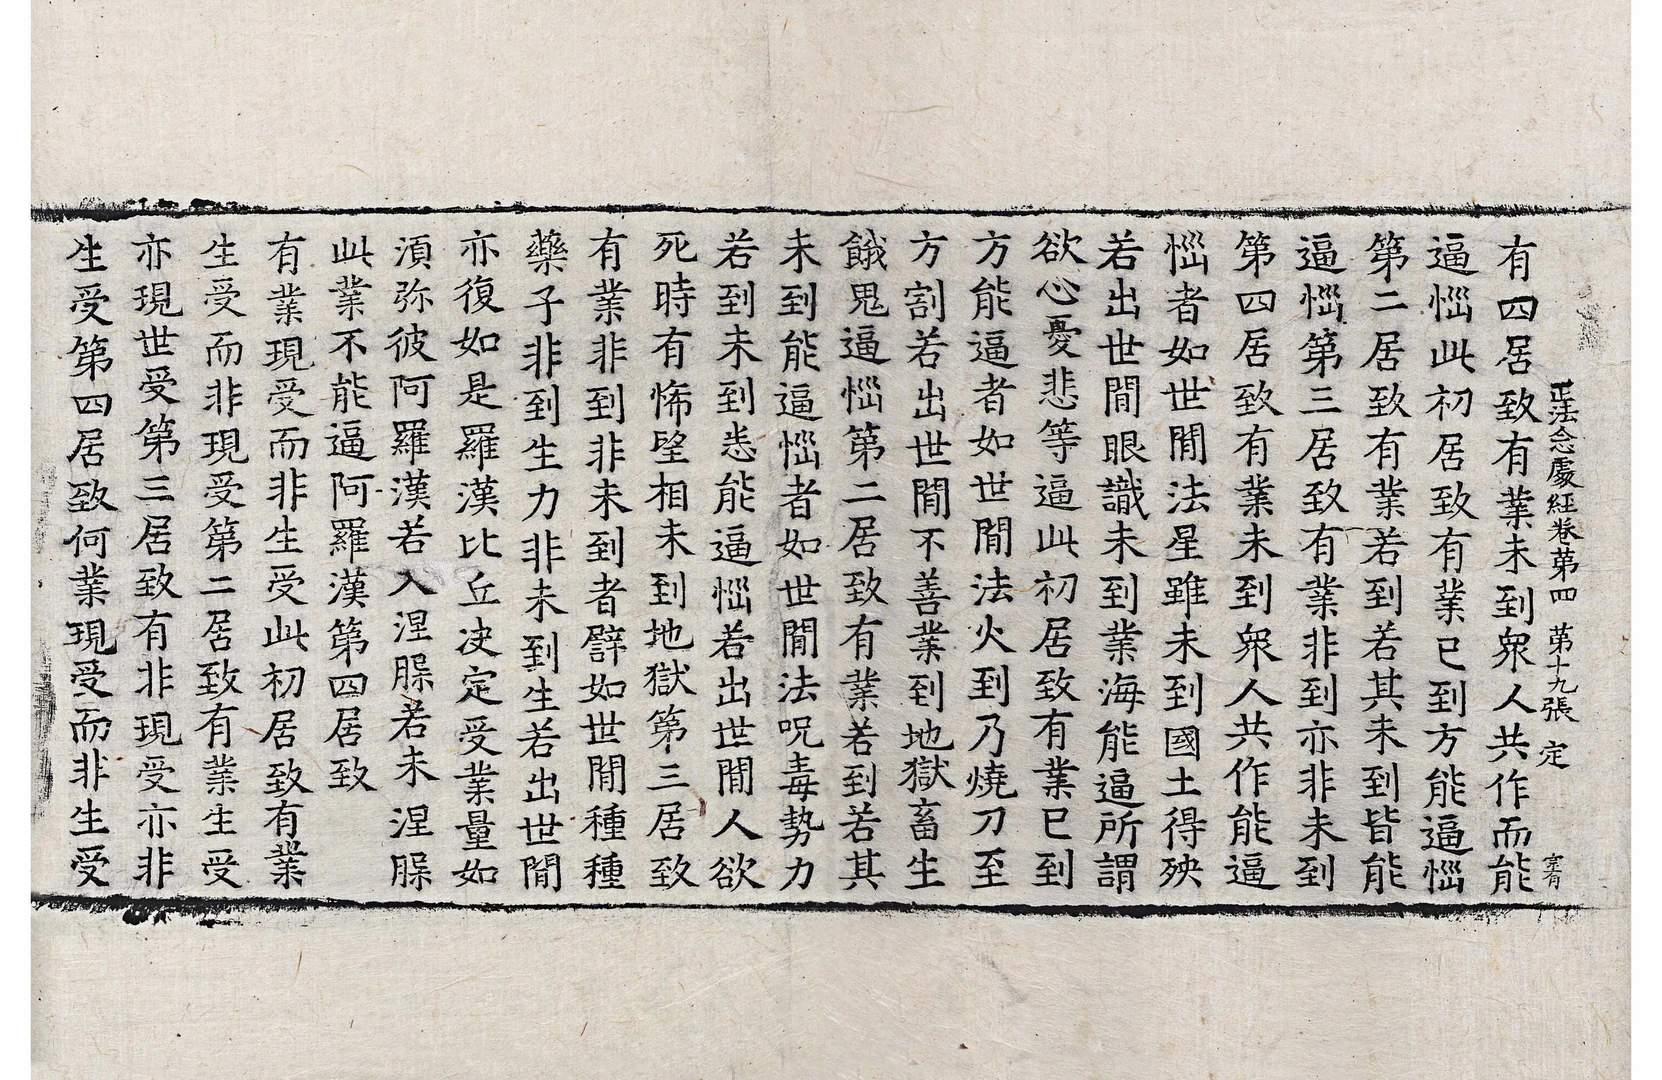 正法念處經卷第四 第十九張 定
有四居致有業未到衆人共作而能
逼惱此初居致有業已到方能逼惱
第二居致有業若到若其未到皆能
逼惱第三居致有業非到亦非未到
第四居致有業未到衆人共作能逼
惱者如世間法星雖未到國土得殃
若出世間眼識未到業海能逼所謂
欲心憂悲等逼此初居致有業已到
方能逼者如世間法火到乃燒刀至
方割若出世間不善業到地獄畜生
餓鬼逼惱第二居致有業若到若其
未到能逼惱者如世間法呪毒勢力
若到未到悉能逼惱若出世間人欲
死時有怖望相未到地獄第三居致
有業非到非未到者譬如世間種種
藥子非到生力非未到生若出世間
亦復如是羅漢比丘决定受業量如
湏弥彼阿羅漢若入涅槃若未涅槃
此業不能逼阿羅漢第四居致
有業現受而非生受此初居致有業
生受而非現受第二居致有業生受
亦現世受第三居致有非現受亦非
生受第四居致何業現受而非生受